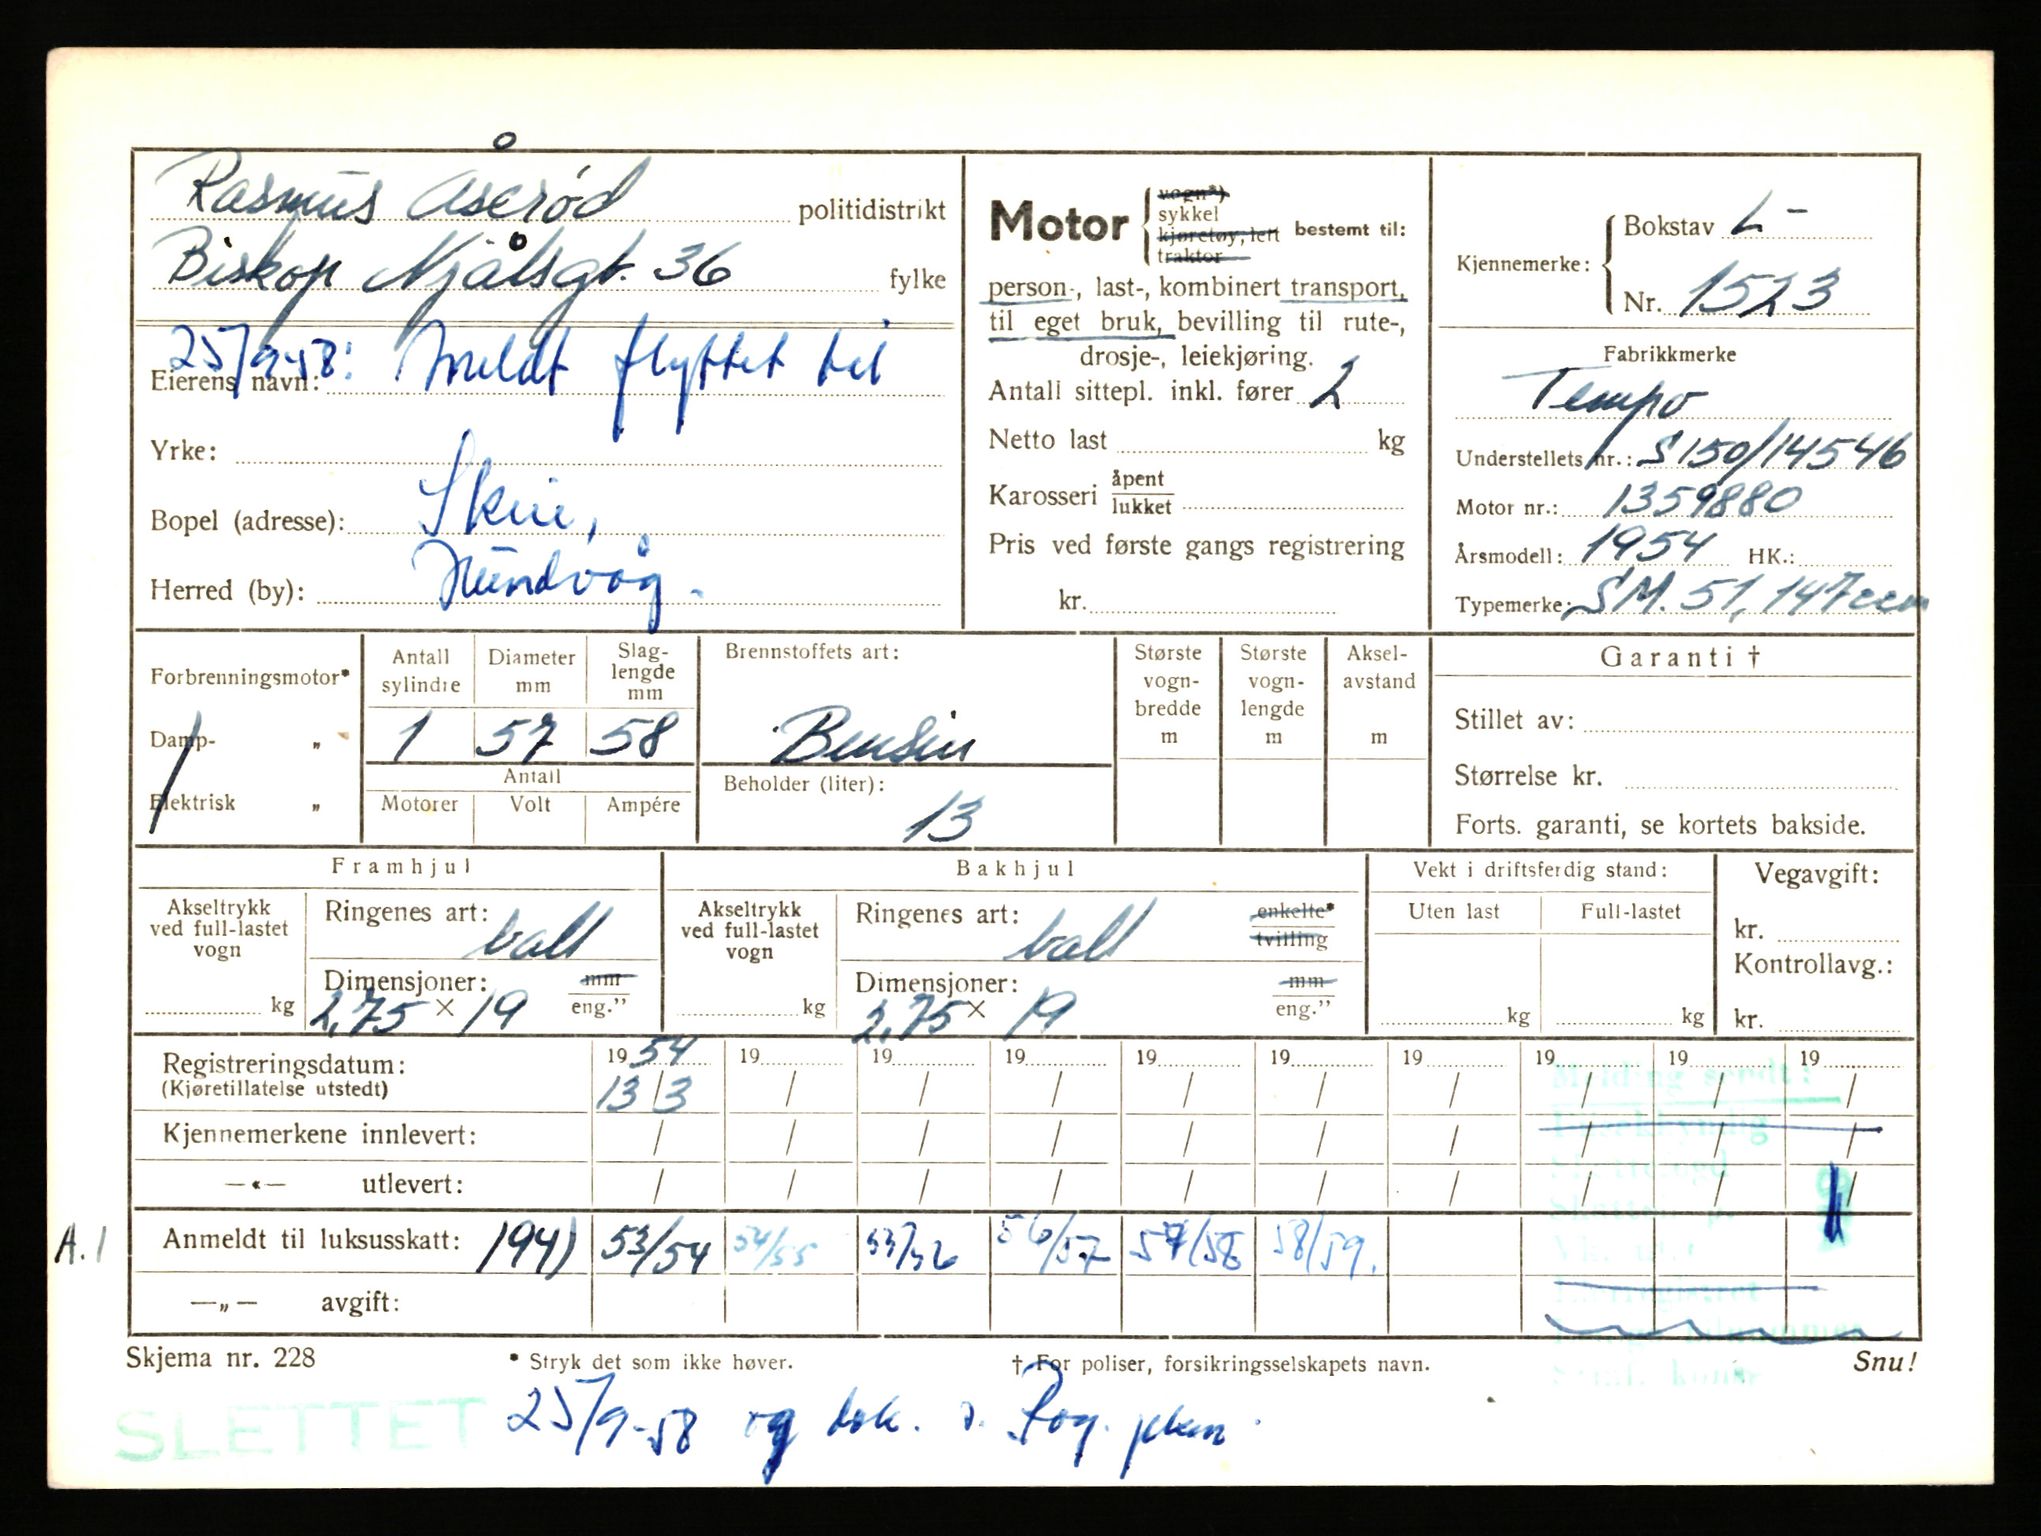 Rasmus Åserød politidistrikt
Biskop Njålsgt. 36 fylke
25/9-58: Meldt flyttet til
Eierens navn:
Yrke:
Skeie,
Bopel (adresse):
Hundvåg.
Herred (by):
Motor vogn*)
sykkel
kjøretøy, lett
traktor
bestemt til:
person-, last-, kombinert transport,
til eget bruk, bevilling til rute-,
drosje-, leiekjøring.
Antall sittepl. inkl. fører 2
Netto last kg
Karosseri åpent
lukket
Pris ved første gangs registrering
kr.
Kjennemerke: Bokstav L-
Nr. 1523
Fabrikkmerke
Tempo
Understellets nr.: S150/14546
Motor nr.: 1359880
Årsmodell: 1954 HK.:
Typemerke: SM. 51, 147ccm
Forbrenningsmotor*
Damp- „
Elektrisk „
Antall sylindre
Diameter mm
Slag-lengde mm
1 57 58
Antall
Motorer Volt Ampére
Brennstoffets art:
Bensin
Beholder (liter):
13
Største vogn-bredde m
Største vogn-lengde m
Aksel-avstand m
Garanti †
Stillet av:
Størrelse kr.
Forts. garanti, se kortets bakside.
Framhjul
Akseltrykk
ved full-lastet
vogn
kg
Ringenes art: ball
Dimensjoner: mm
2,75 × 19 eng.”
Bakhjul
Akseltrykk
ved full-lastet
vogn
kg
Ringenes art: ball enkelte*
tvilling
Dimensjoner: mm
2,75 × 19 eng.”
Vekt i driftsferdig stand:
Uten last Full-lastet
kg kg
Vegavgift:
kr.
Kontrollavg.:
kr.
Registreringsdatum: 1954 19 19 19 19 19 19 19 19 19
(Kjøretillatelse utstedt) 13/3 / / / / / / / / /
Kjennemerkene innlevert: / / / / / / / / / /
—«— utlevert: / / / / / / / / / /
A.1 Anmeldt til luksusskatt: 1941 53/54 54/55 55/56 56/57 57/58 58/59.
—„— avgift:
Melding sendt:
Skjema nr. 228
* Stryk det som ikke høver.
† For poliser, forsikringsselskapets navn.
Snu!
SLETTET
25/9-58 og